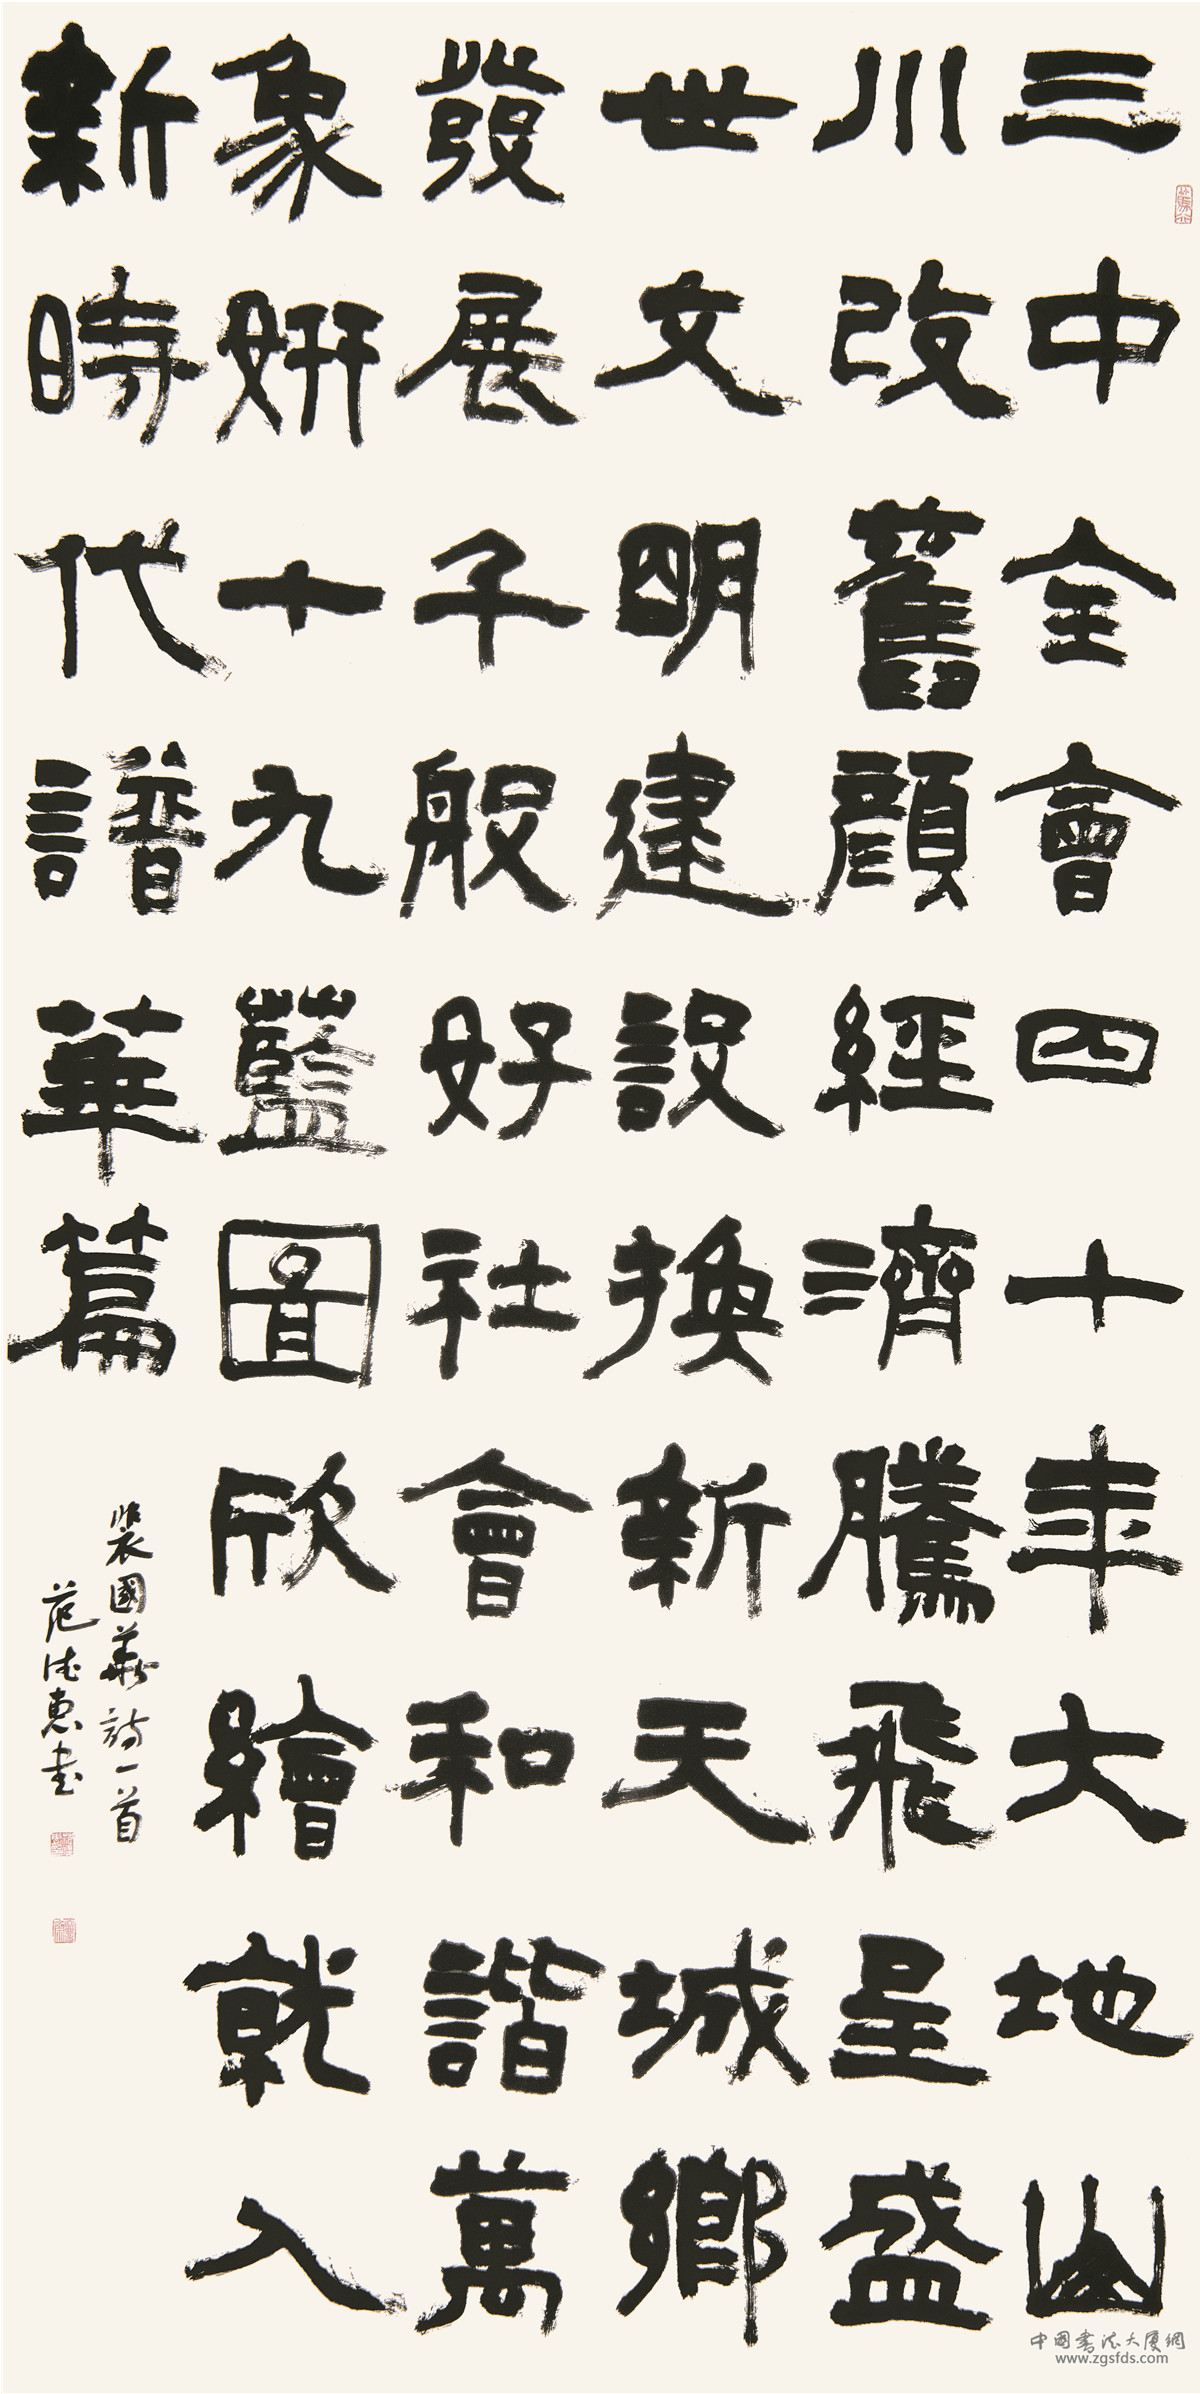 三中全會四十年大地山
川改舊顔經濟騰飛呈盛
世文明建設換新天城鄉
發展千般好社會和諧萬
象妍十九藍圖欣繪就入
新時代譜華篇
裴國華詩一首
范德惠书
中國書法大厦網
www.zgsfds.com